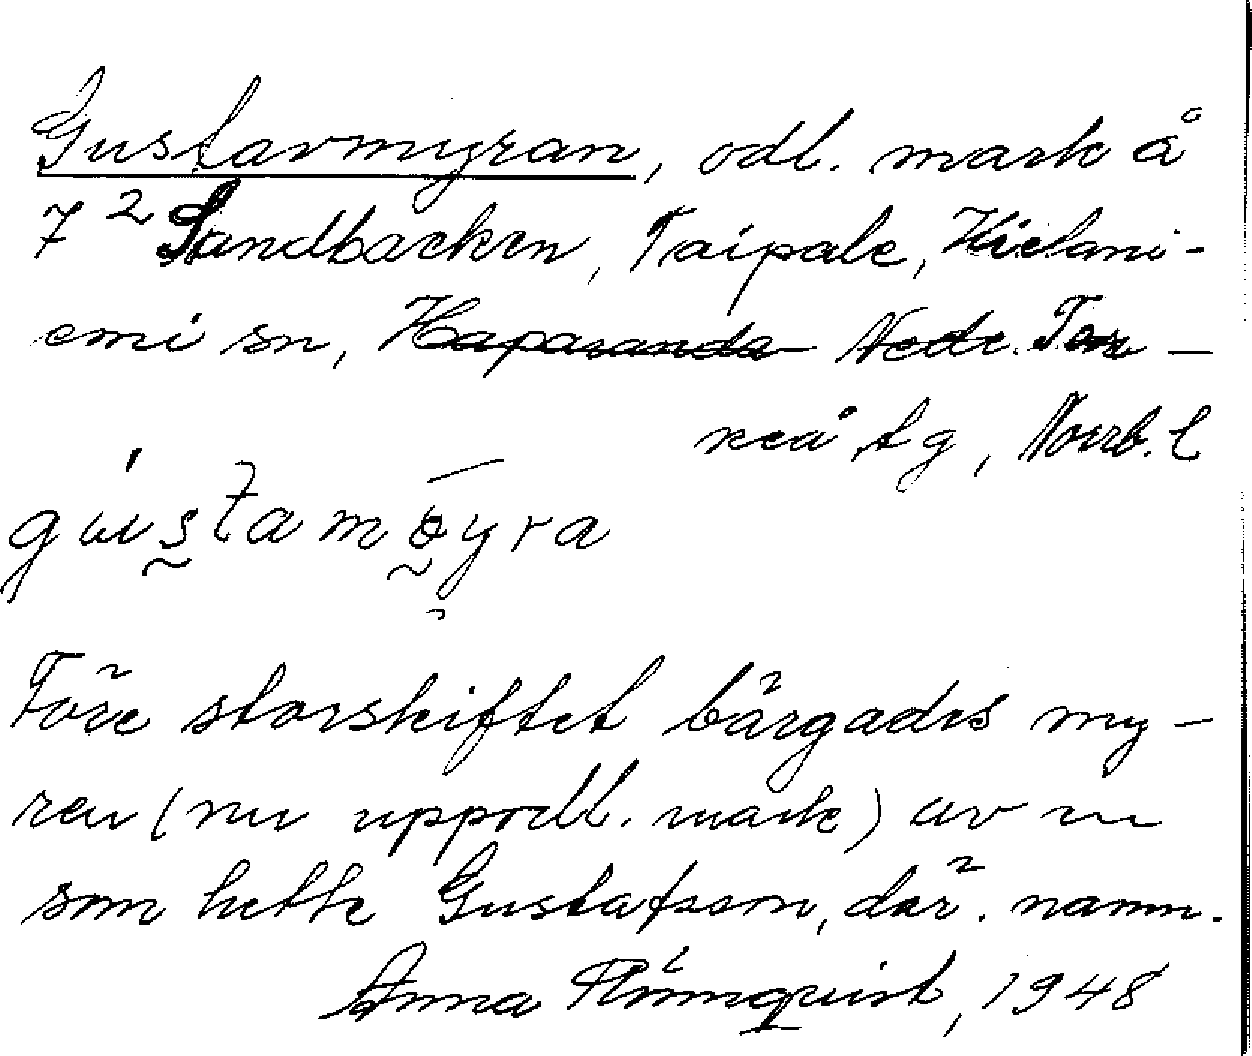 Gustavmyran, odl. mark å
7² Sandbacken, Taipale, Hietani-
emi sn, Haparanda Nede. Tor-
neå tg, Norrb. l
gustamøyra
Före storskiftet bärgades my-
ren (nu uppodl. mark) av en
som hette Gustafsson, där. namn.
Anna 1948